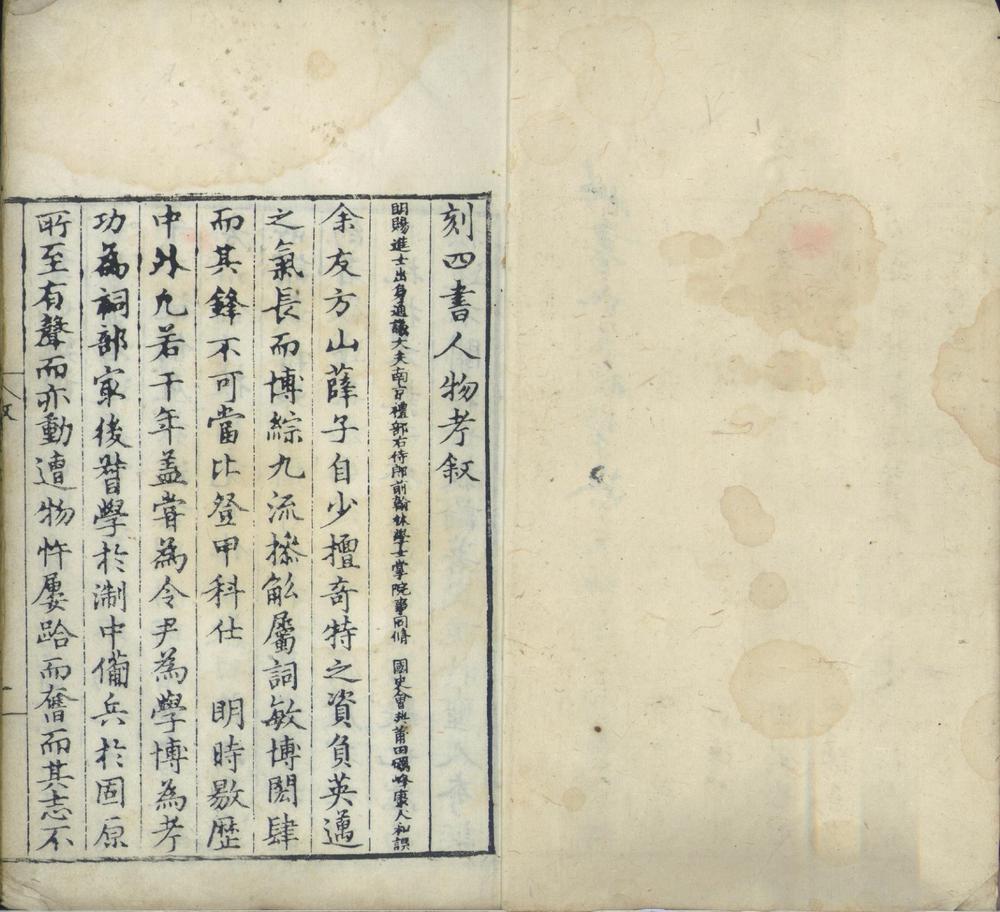 刻四書人物考叙
明賜進士出身通議大夫南京禮部右侍郎前翰林學士掌院事同脩　國史會典莆田礪峰康大和譔
余友方山薛子自少擅奇特之資負英邁
之氣長而博綜九流摻觚屬詞敏博閎肆
而其鋒不可當比登甲科仕　明時敭歷
中外凢若干年盖甞為令尹為學博為考
功為祠部寂後督學於淛中備兵於固原
所至有聲而亦動遭物忤屢跲而奮而其志不
叙
一